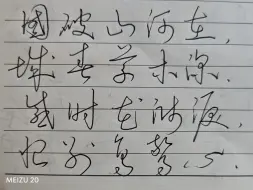 國破山河在,
城春草木深.
感时花溅淚,
恨别鸟驚心.
MEIZU 20